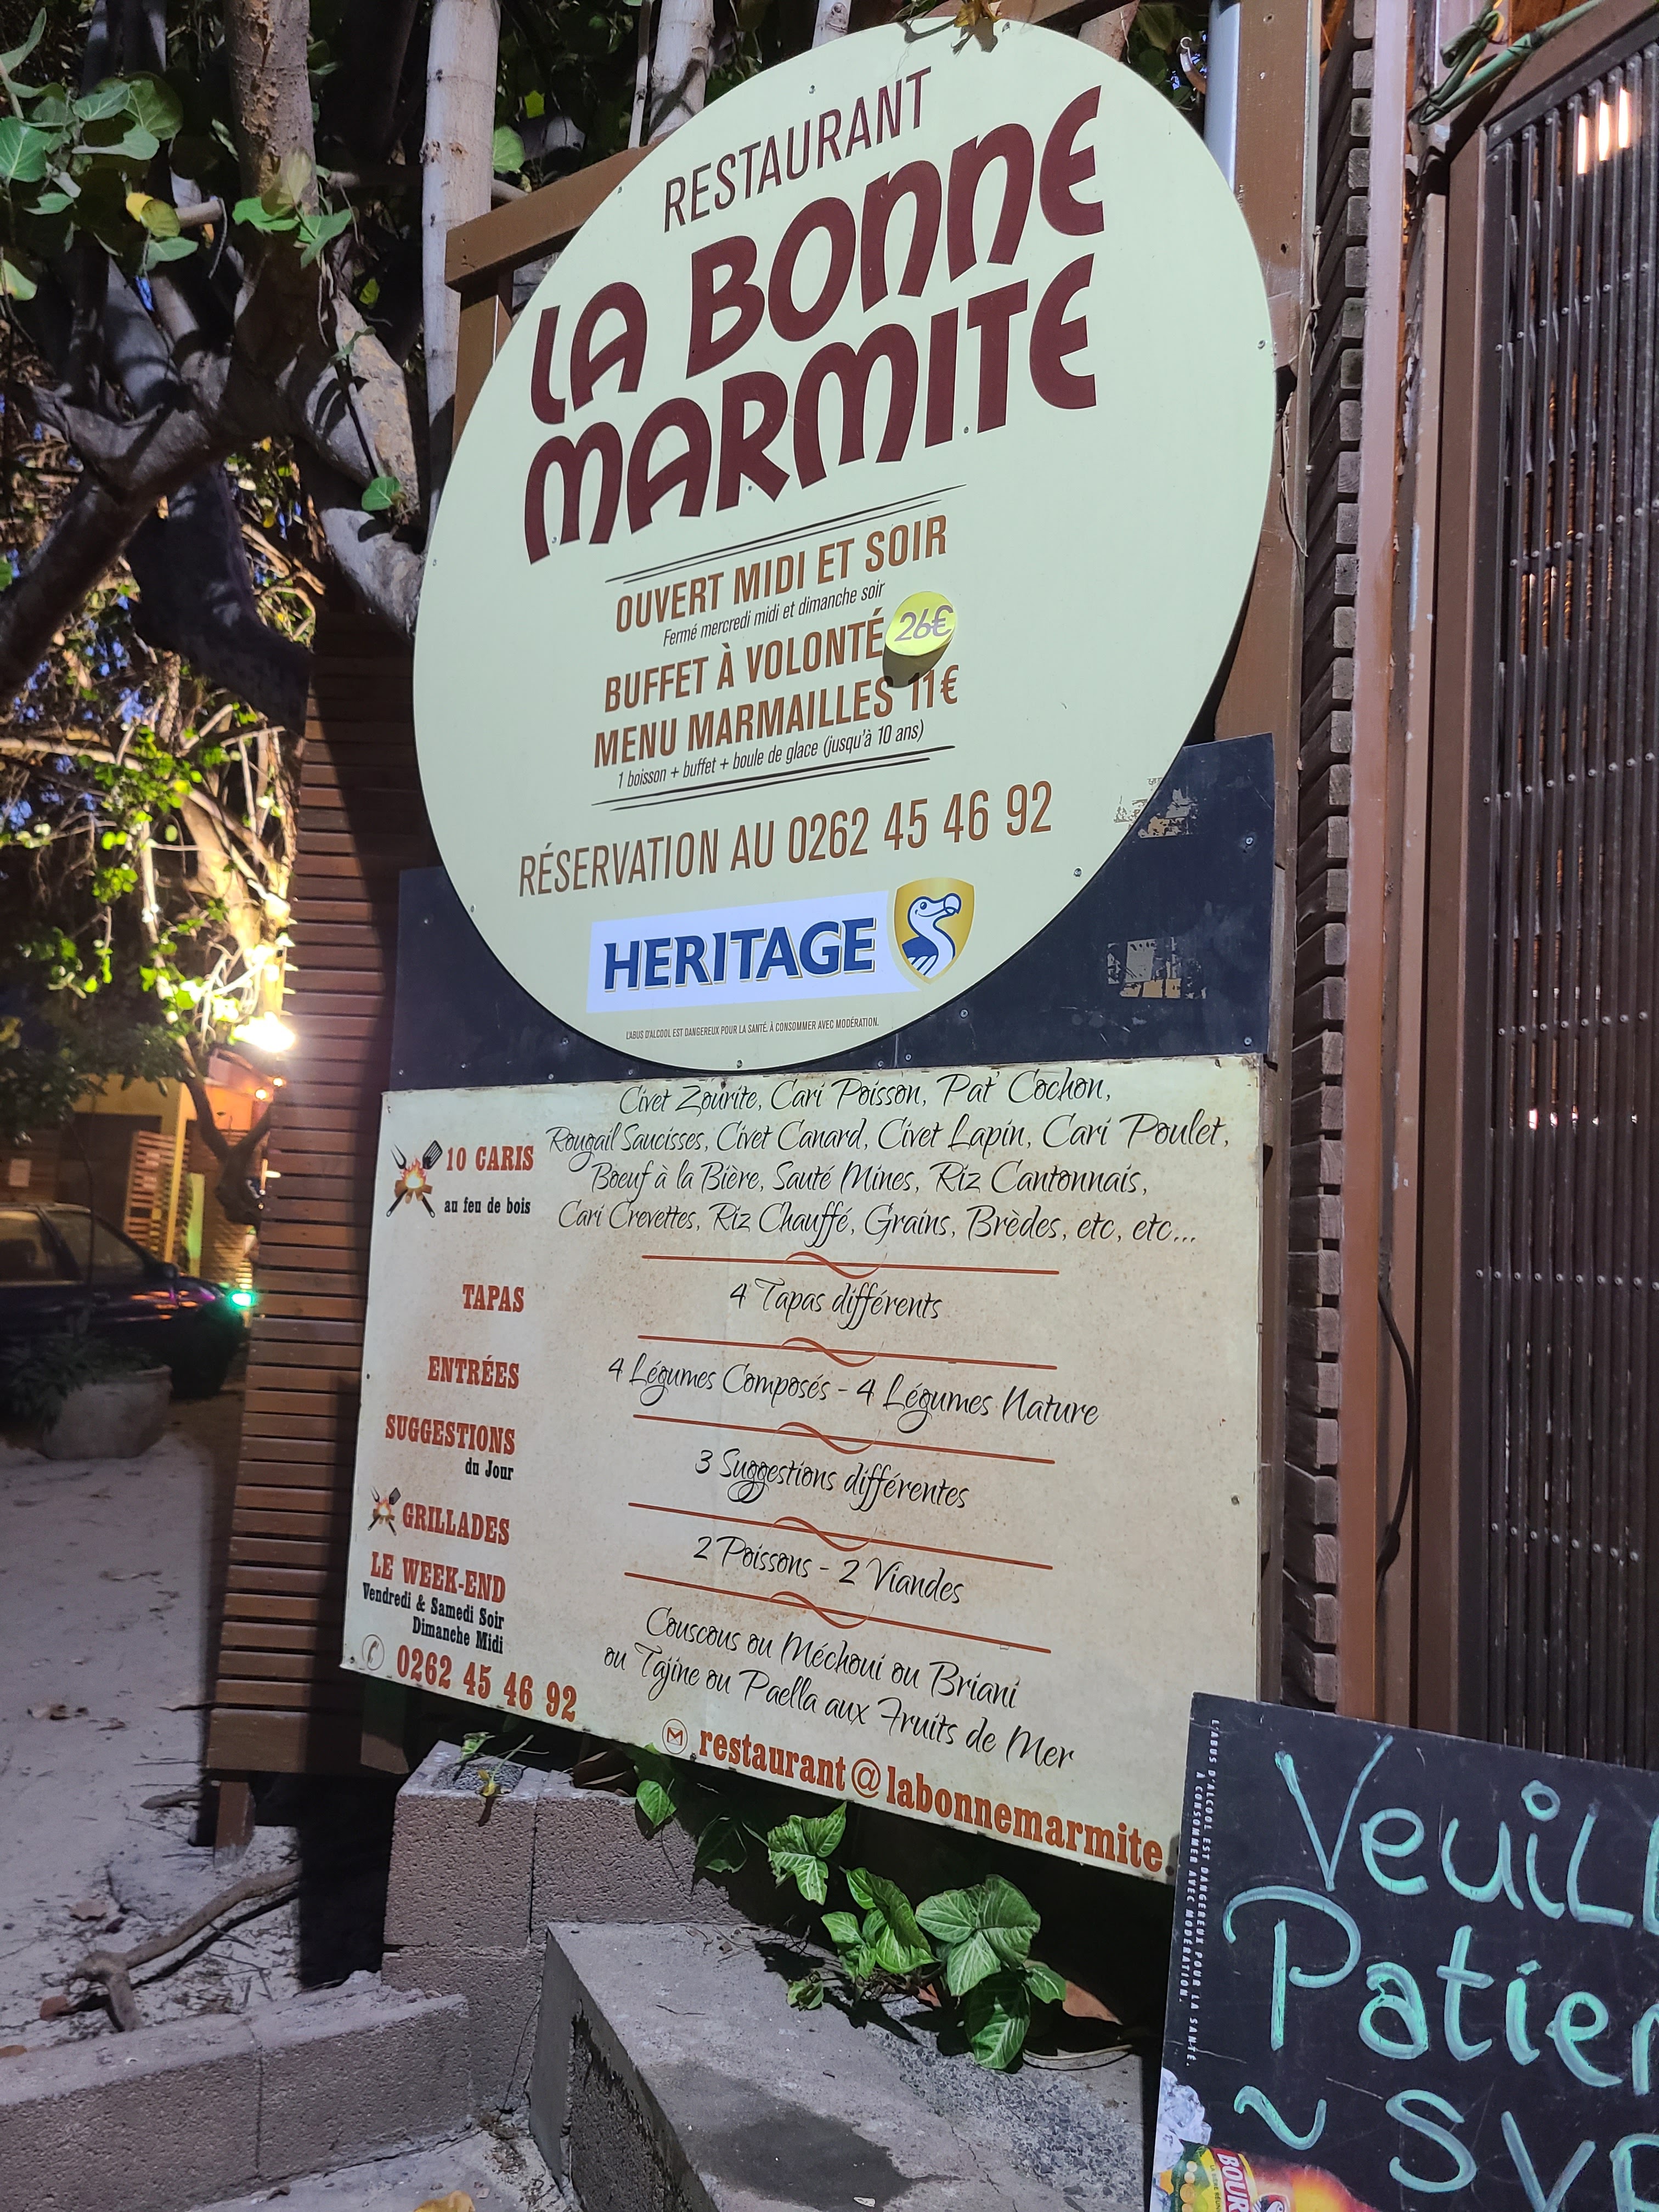 RESTAURANT
LA BONNE
MARMITE
OUVERT MIDI ET SOIR
Fermé mercredi midi et dimanche soir
BUFFET À VOLONTÉ 26€
MENU MARMAILLES 11€
1 boisson + buffet + boule de glace (jusqu'à 10 ans)
RÉSERVATION AU 0262 45 46 92
HERITAGE
L'ABUS D'ALCOOL EST DANGEREUX POUR LA SANTÉ. À CONSOMMER AVEC MODÉRATION.
10 CARIS
au feu de bois
Civet Zourite, Cari Poisson, Pat' Cochon,
Rougail Saucisses, Civet Canard, Civet Lapin, Cari Poulet,
Boeuf à la Bière, Sauté Mines, Riz Cantonnais,
Cari Crevettes, Riz Chauffé, Grains, Brèdes, etc, etc...
TAPAS
4 Tapas différents
ENTRÉES
4 Légumes Composés - 4 Légumes Nature
SUGGESTIONS
du Jour
3 Suggestions différentes
GRILLADES
2 Poissons - 2 Viandes
LE WEEK-END
Vendredi & Samedi Soir
Dimanche Midi
Couscous ou Méchoui ou Briani
ou Tajine ou Paella aux Fruits de Mer
0262 45 46 92
restaurant@labonnemarmite.
L'ABUS D'ALCOOL EST DANGEREUX POUR LA SANTÉ.
À CONSOMMER AVEC MODÉRATION.
Veuil
Patien
~ SVP
BOUR